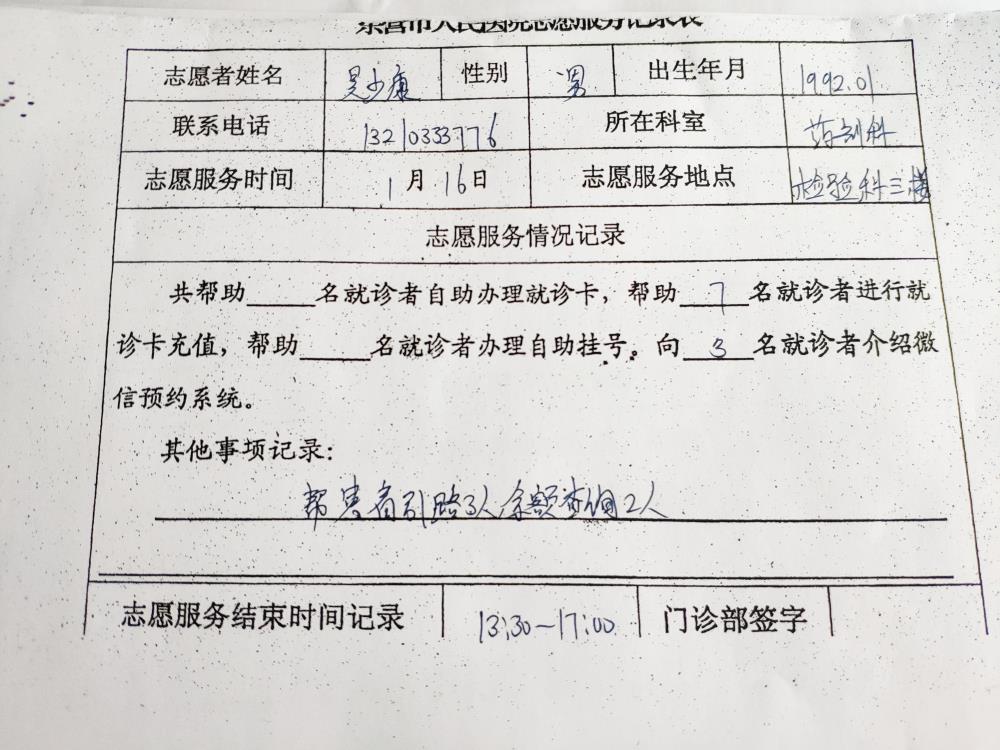 东营市人民医院志愿服务记录表
志愿者姓名 吴少康 性别 男 出生年月 1992.01
联系电话 13210333776 所在科室 药剂科
志愿服务时间 1月16日 志愿服务地点 检验科三楼
志愿服务情况记录
共帮助____名就诊者自助办理就诊卡，帮助 7 名就诊者进行就
诊卡充值，帮助____名就诊者办理自助挂号。向 3 名就诊者介绍微
信预约系统。
其他事项记录：
帮患者引路3人余额查询2人
志愿服务结束时间记录 13:30—17:00 门诊部签字